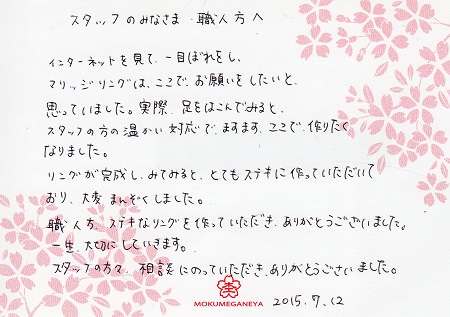 スタッフのみなさま・職人方へ
インターネットを見て、一目ぼれをし、
マリッジリングは、ここで、お願いをしたいと、
思っていました。実際、足をはこんでみると、
スタッフの方の温かい対応で、ますます、ここで、作りたく
なりました。
リングが完成し、みてみると、とてもステキに作っていただいて
おり、大変まんぞくしました。
職人方、ステキなリングを作っていただき、ありがとうございました。
一生大切にしていきます。
スタッフの方々、相談にのっていただき、ありがとうございました。
MOKUMEGANEYA
2015.7.12